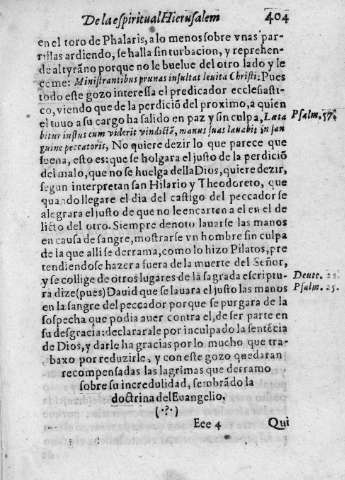 De la espiritual Hierusalem 404
en el toro de Phalaris, a lo menos sobre vnas par-
rillas ardiendo, se halla sin turbacion, y reprehen-
de al tyrãno porque no le buelue del otro lado y le
come: Ministrantibus prunas insultat leuita Christi: Pues
todo este gozo interessa el predicador ecclesiasti-
co, viendo que de la perdicion del proximo, a quien
el tuuo a su cargo ha salido en paz y sin culpa, Læta
Psalm. 57.
bitur iustus cum viderit vindictã, manus suas lauabit in san
guine peccatoris, No quiere dezir lo que parece que
suena, esto es: que se holgara el justo de la perdiciõ
del malo, que no se huelga della Dios, quiere dezir,
segun interpretan san Hilario y Theodoreto, que
quando llegare el dia del castigo del peccador se
alegrara el justo de que no le encarten a el en el de
licto del otro. Siempre denoto lauarse las manos
en causa de sangre, mostrarse vn hombre sin culpa
de la que alli se derrama, como lo hizo Pilatos, pre
tendiendose hazer a fuera de la muerte del Señor,
y se collige de otros lugares de la sagrada escriptu-
Deute. 21.
ra dize (pues) Dauid que se lauara el justo las manos
Psalm. 25.
en la sangre del peccador porque se purgara de la
sospecha que podia auer contra el, de ser parte en
su desgracia: declararale por inculpado la sentẽcia
de Dios, y darle ha gracias por lo mucho que tra-
baxo por reduzirle, y con este gozo quedaran
recompensadas las lagrimas que derramo
sobre su incredulidad, sembrãdo la
doctrina del Euangelio.
(·?·)
Eee 4 Qui